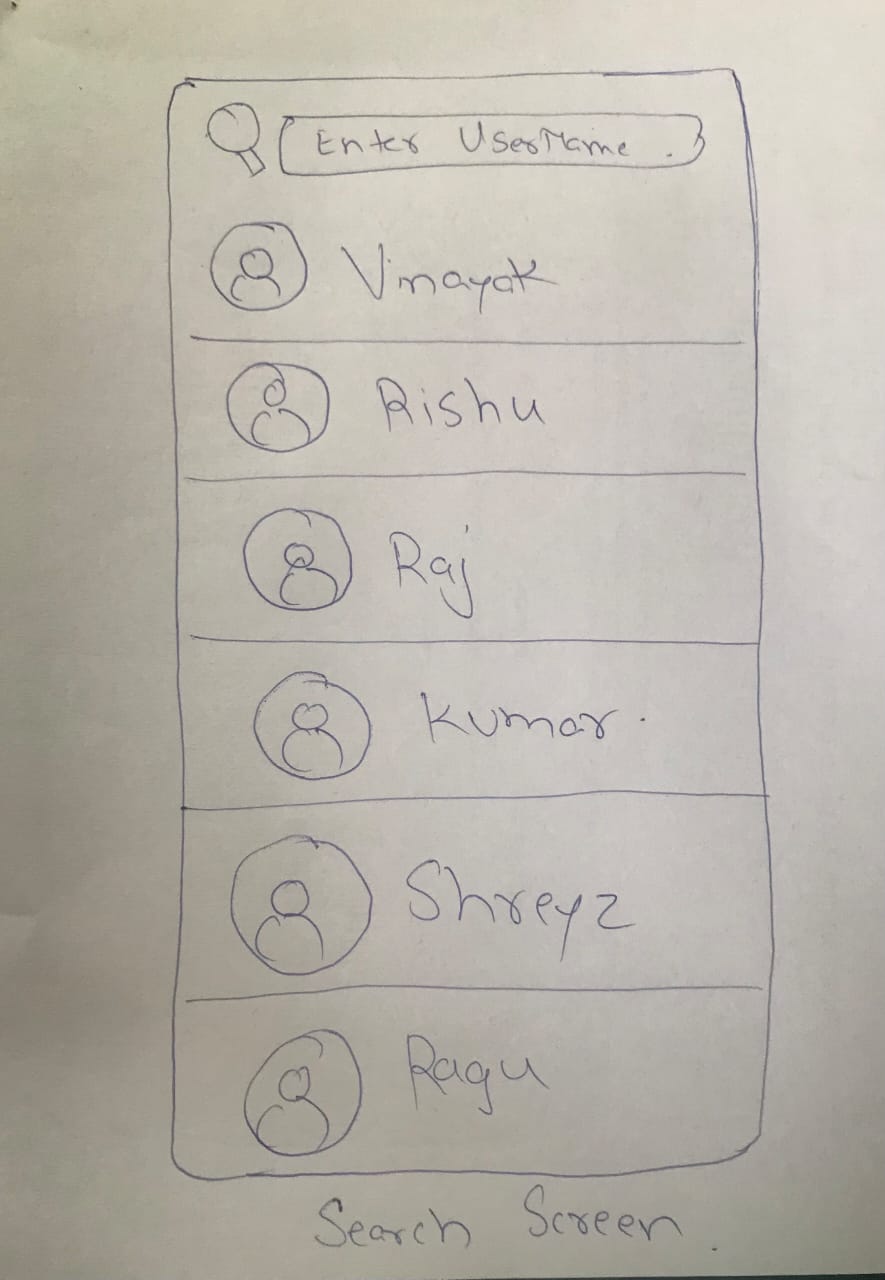 Enter UserName.
Vinayak
Rishu
Raj
Kumar.
Shreyz
Ragu
Search Screen.